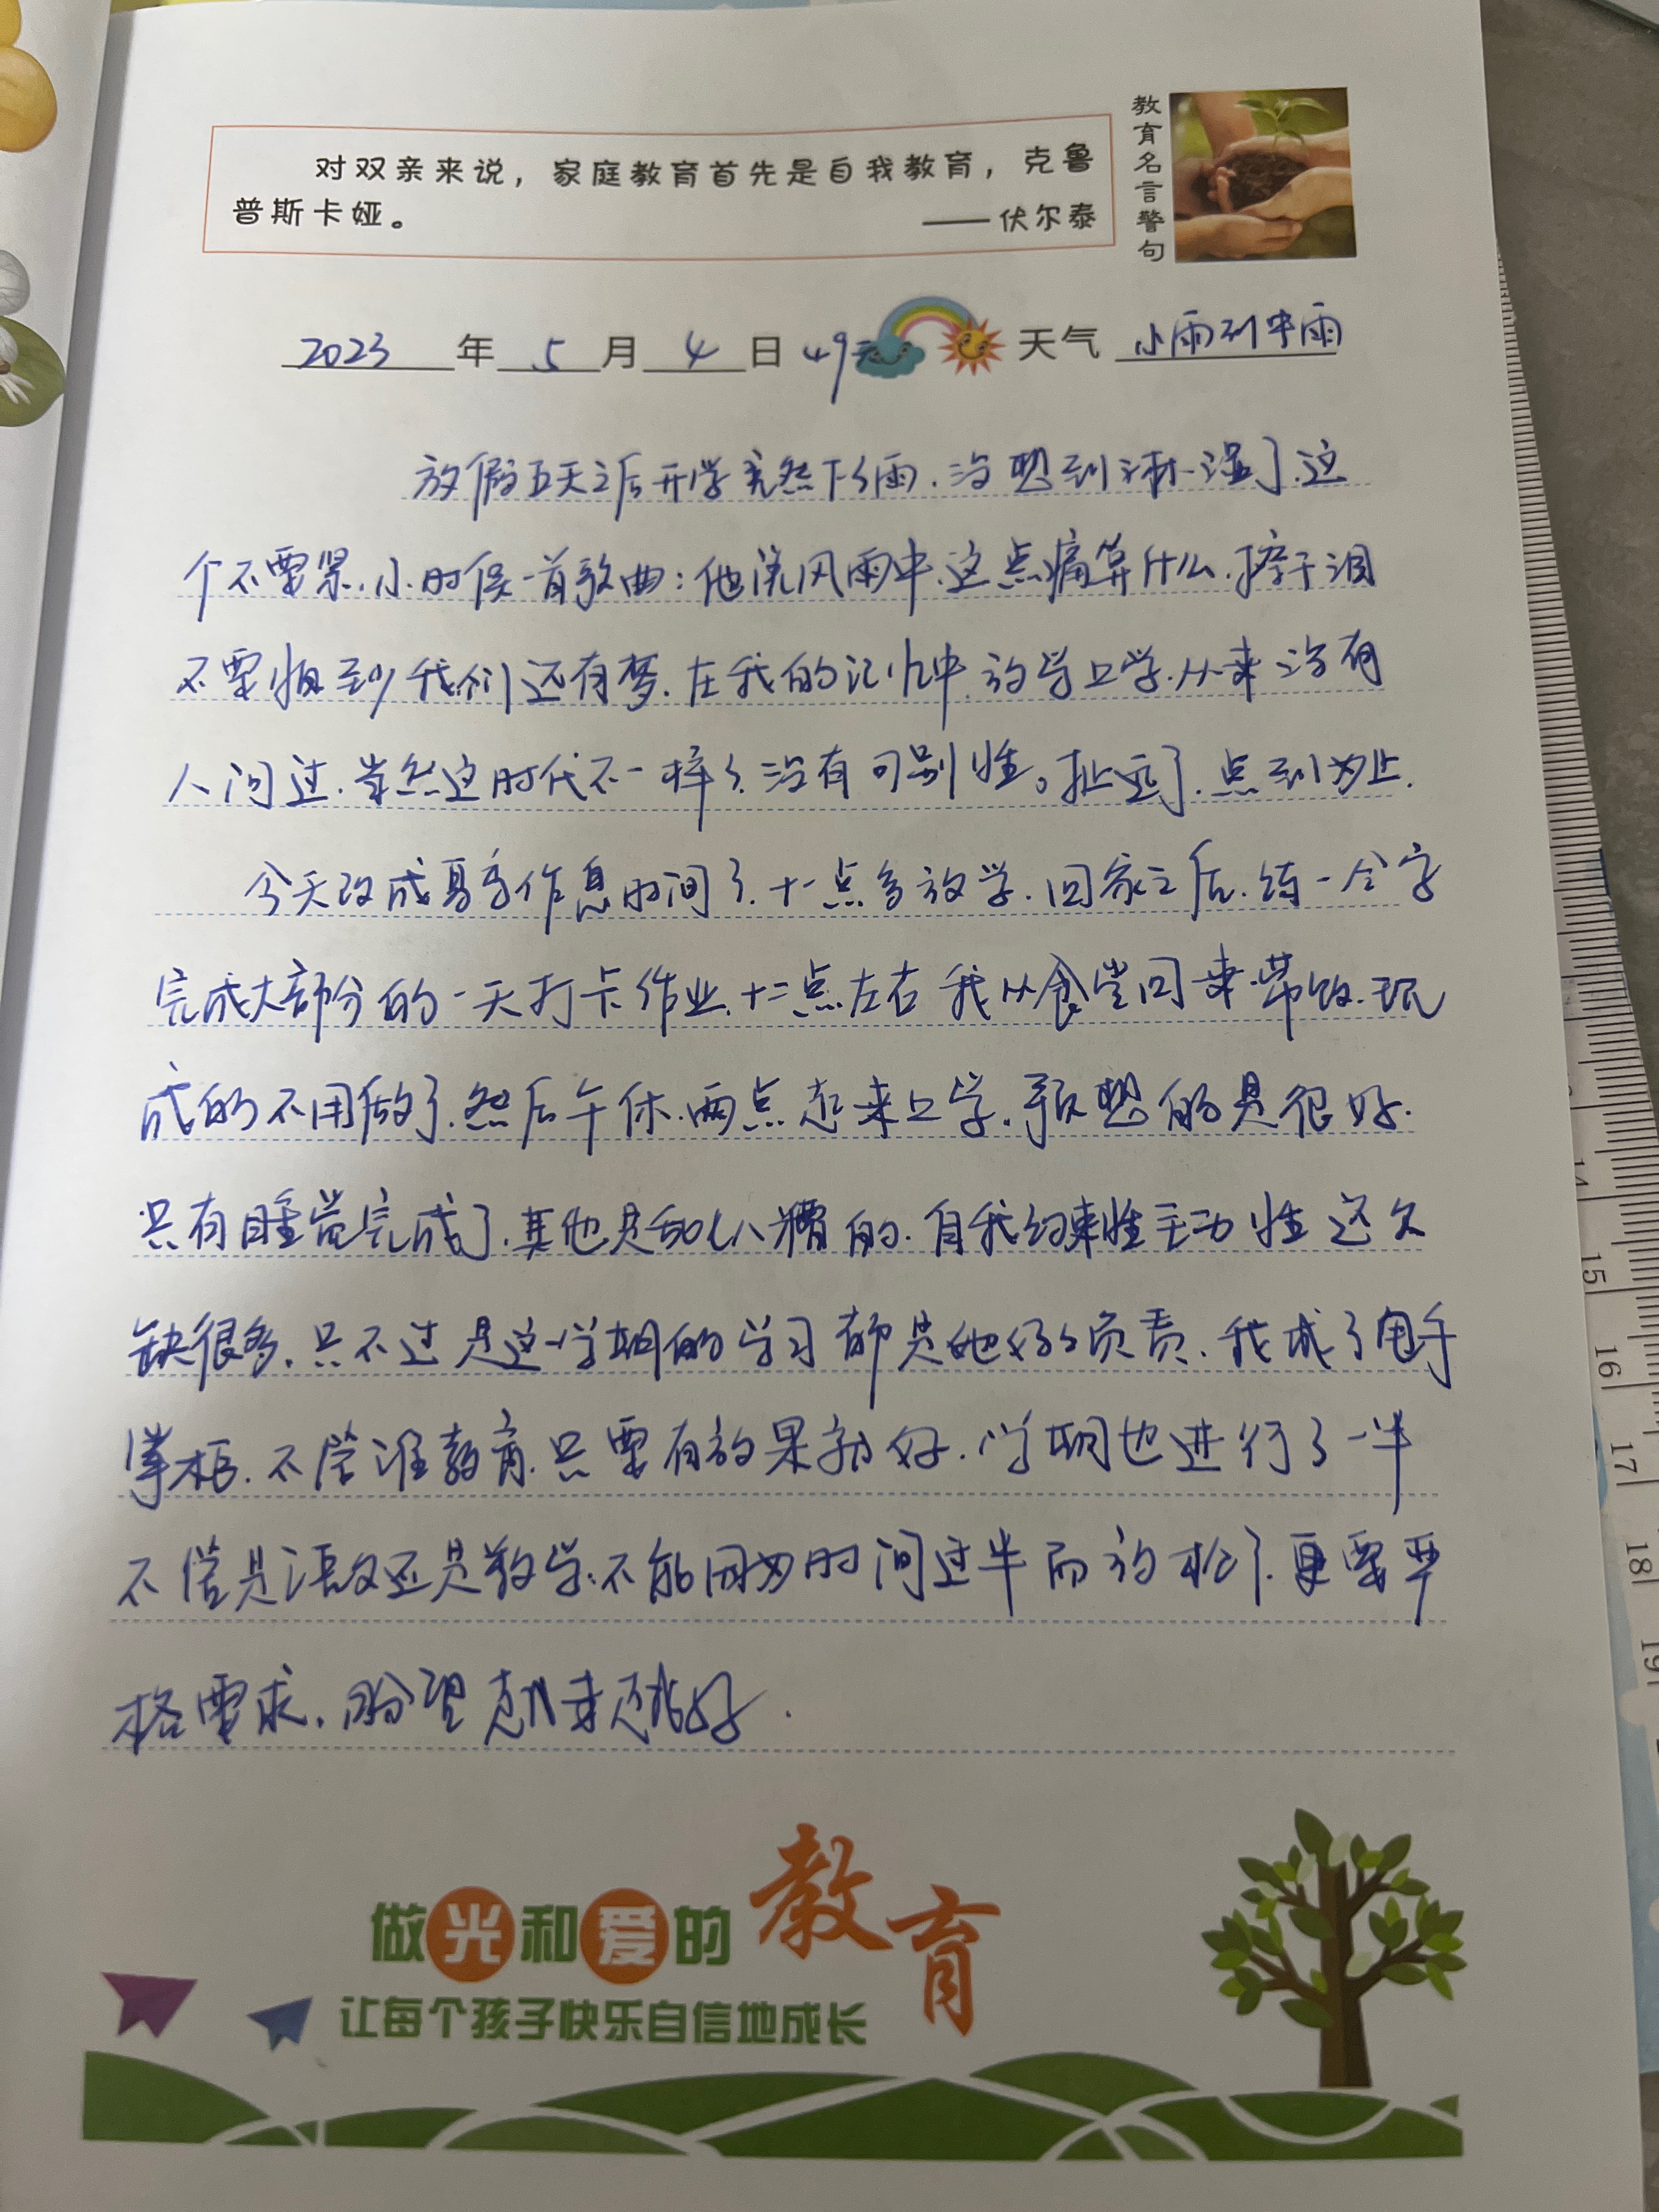 对双亲来说，家庭教育首先是自我教育，克鲁
普斯卡娅。 ——伏尔泰
教育名言警句
2023年5月4日 49天 天气 小雨到中雨
放假五天之后开学竟然下了雨.没想到淋湿了.这
个不要紧.小时候一首歌曲:他说风雨中.这点痛算什么.擦干泪
不要怕至少我们还有梦.在我的记忆中.放学上学.从来没有
人问过.当然这时代不一样了.没有可别性。扯远了.点到为止.
今天改成夏季作息时间了.十一点多放学.回家之后.练一会字
完成大部分的一天打卡作业.十二点左右我从食堂回来带饭.现
成的不用做了.然后午休.两点起来上学.预想的是很好.
只有睡觉完成了.其他是乱七八糟的.自我约束性主动性还欠
缺很多.只不过是这一学期的学习都是她妈妈负责.我成了甩手
掌柜.不管谁教育.只要有效果就好.学期也进行了一半
不管是语文还是数学.不能因为时间过半而放松了.更要严
格要求.盼望越来越好.
做光和爱的教育
让每个孩子快乐自信地成长
14
15
16
17
18
19